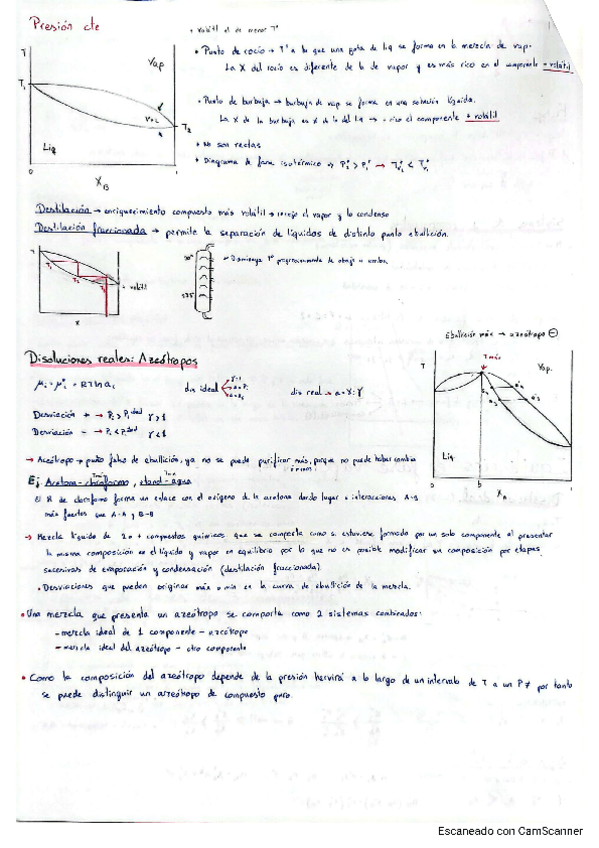 Presión cte
• Volátil el de menor Tª
T
Vap
• Punto de rocío → Tª a la que una gota de liq se forma en la mezcla de vap.
La X del rocío es diferente de la de vapor y es más rico en el componente - volátil
T₁
V+L
T₂
• Punto de burbuja → burbuja de vap se forma en una solución líquida.
La X de la burbuja es ≠ de la del liq → rico el componente + volátil
Liq
• No son rectas
• Diagrama de fase isotérmico
0
1
X_B
Destilación → enriquecimiento compuesto más volátil → recojo el vapor y lo condenso
Destilación fraccionada → permite la separación de líquidos de distinto punto ebullición.
+ volátil
→ Disminuye Tª progresivamente de abajo a arriba
x
Ebullición máx → azeótropo ⊖
Disoluciones reales: Azeótropos
T
T máx
Vap.
dis ideal
γ=1
dis real → a = X·γ
Desviación + → Pᵢ > Pᵢ ideal γ>1
Desviación - → Pᵢ < Pᵢ ideal γ<1
Liq
→ Azeótropo → punto falso de ebullición, ya no se puede purificar más, porque no puede haber cambio
0
b
1
X_A
Ej: Acetona - cloroformo, etanol - agua
El H de cloroformo forma un enlace con el oxígeno de la acetona dando lugar a interacciones A-B
más fuertes que A-A y B-B
→ Mezcla líquida de 2 o + compuestos químicos que se comporta como si estuviese formada por un solo componente al presentar
la misma composición en el líquido y vapor en equilibrio por lo que no es posible modificar su composición por etapas
sucesivas de evaporación y condensación (destilación fraccionada)
• Desviaciones que pueden originar máx o mín en la curva de ebullición de la mezcla.
• Una mezcla que presenta un azeótropo se comporta como 2 sistemas combinados:
- mezcla ideal de 1 componente - azeótropo
- mezcla ideal del azeótropo - otro componente
• Como la composición del azeótropo depende de la presión hervirá a lo largo de un intervalo de T a un P≠ por tanto
se puede distinguir un azeótropo de compuesto puro.
Escaneado con CamScanner